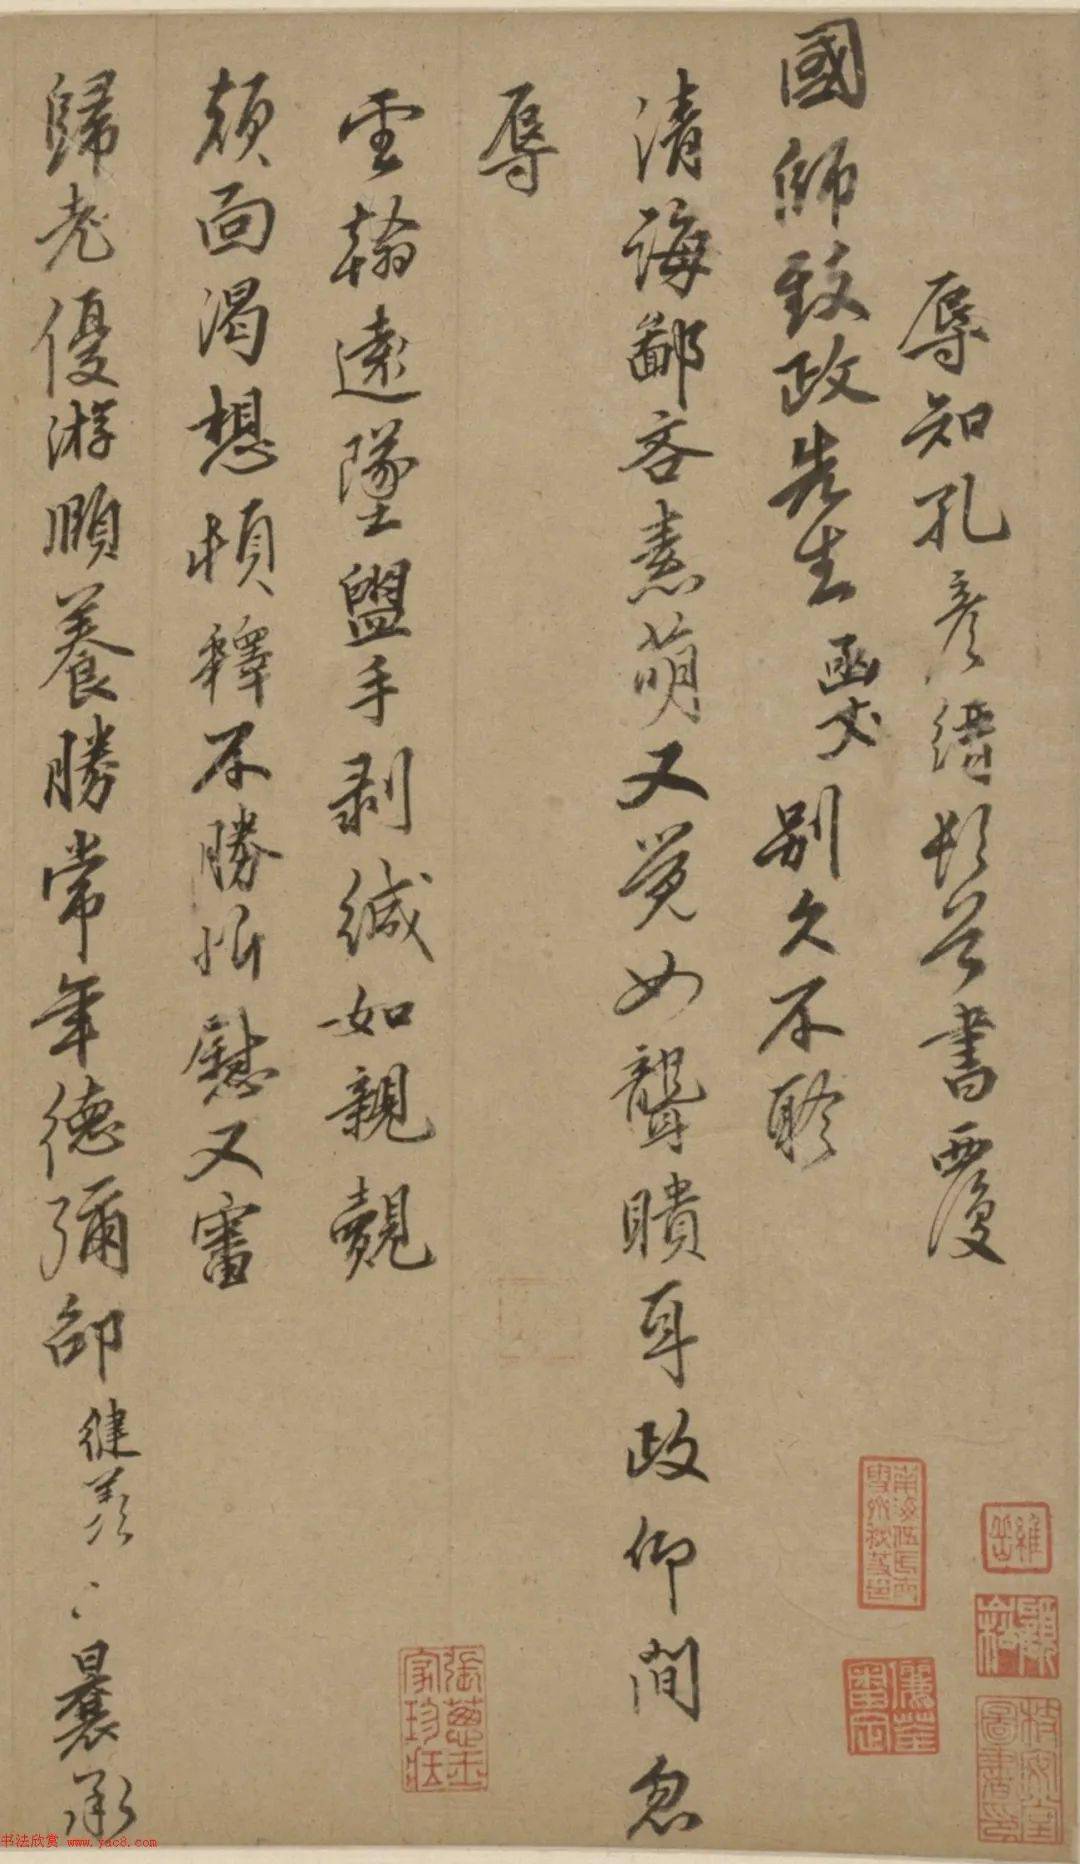 辱知孔彥縉頓首書覆
國師致政先生函丈別久不聆
清誨鄙吝素萌又覺如聾聵耳政仰間忽
辱
雲翰遠墜盥手剥緘如親覿
顏面渴想頓釋不勝忻慰又審
歸老優游頤養勝常年德彌卲健羨〻曩承
張蔥玉家珍藏
書法欣赏 www.yac8.com